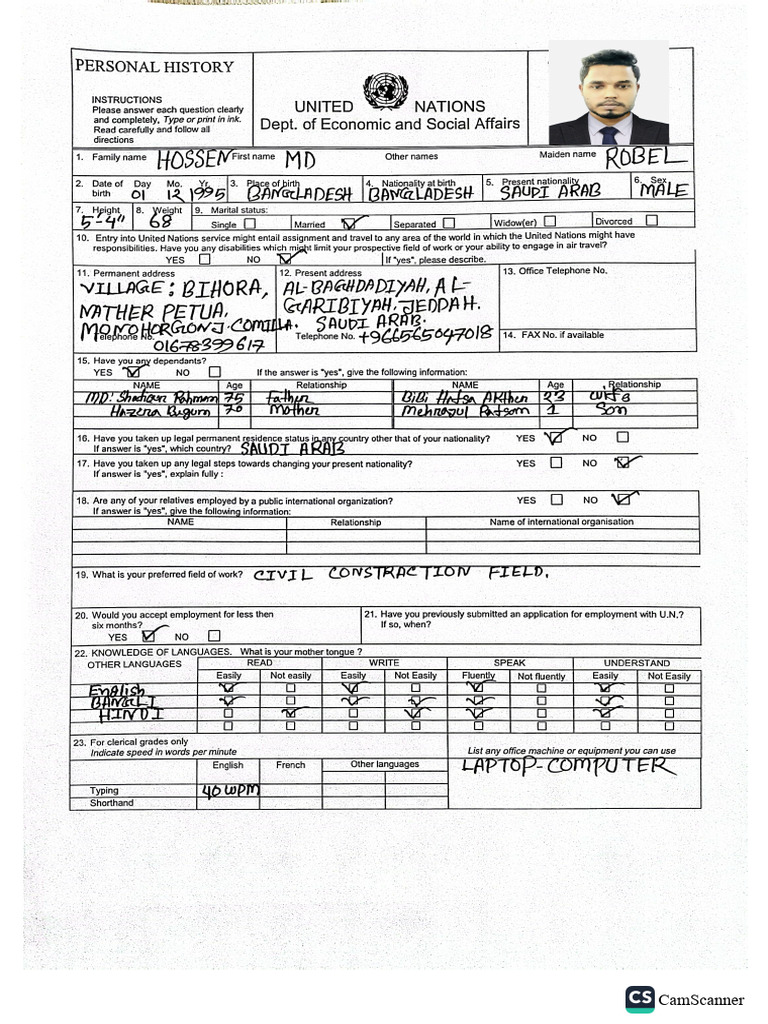 PERSONAL HISTORY
INSTRUCTIONS
Please answer each question clearly
and completely, Type or print in ink.
Read carefully and follow all
directions
UNITED NATIONS
Dept. of Economic and Social Affairs
1. Family name HOSSEN First name MD Other names Maiden name ROBEL
2. Date of birth Day 01 Mo. 12 Yr. 1995 3. Place of birth BANGLADESH 4. Nationality at birth BANGLADESH 5. Present nationality SAUDI ARAB 6. Sex MALE
7. Height 5-4" 8. Weight 68 9. Marital status: Single Married Separated Widow(er) Divorced
10. Entry into United Nations service might entail assignment and travel to any area of the world in which the United Nations might have
responsibilities. Have you any disabilities which might limit your prospective field of work or your ability to engage in air travel?
YES NO If "yes", please describe.
11. Permanent address 12. Present address 13. Office Telephone No.
VILLAGE: BIHORA, AL-BAGHDADIYAH, AL-
NATHER PETUA, GARIBIYAH, JEDDAH.
MONOHORGONJ. COMILLA. SAUDI ARAB.
Telephone No. 01678399617 Telephone No. +966565047018 14. FAX No. if available
15. Have you any dependants?
YES NO If the answer is "yes", give the following information:
NAME Age Relationship NAME Age Relationship
MD: Rahman 75 Father BiBi Hafsa AKther 23
Hazera Begum 70 Mother 1 Son
16. Have you taken up legal permanent residence status in any country other that of your nationality? YES NO
If answer is "yes", which country? SAUDI ARAB
17. Have you taken up any legal steps towards changing your present nationality? YES NO
If answer is "yes", explain fully :
18. Are any of your relatives employed by a public international organization? YES NO
If answer is "yes", give the following information:
NAME Relationship Name of international organisation
19. What is your preferred field of work? CIVIL CONSTRACTION FIELD.
20. Would you accept employment for less then
six months?
YES NO
21. Have you previously submitted an application for employment with U.N.?
If so, when?
22. KNOWLEDGE OF LANGUAGES. What is your mother tongue ?
OTHER LANGUAGES READ WRITE SPEAK UNDERSTAND
Easily Not easily Easily Not Easily Fluently Not fluently Easily Not Easily
English
BANGLI
HINDI
23. For clerical grades only
Indicate speed in words per minute
List any office machine or equipment you can use
English French Other languages LAPTOP-COMPUTER
Typing 40 WPM
Shorthand
CS CamScanner